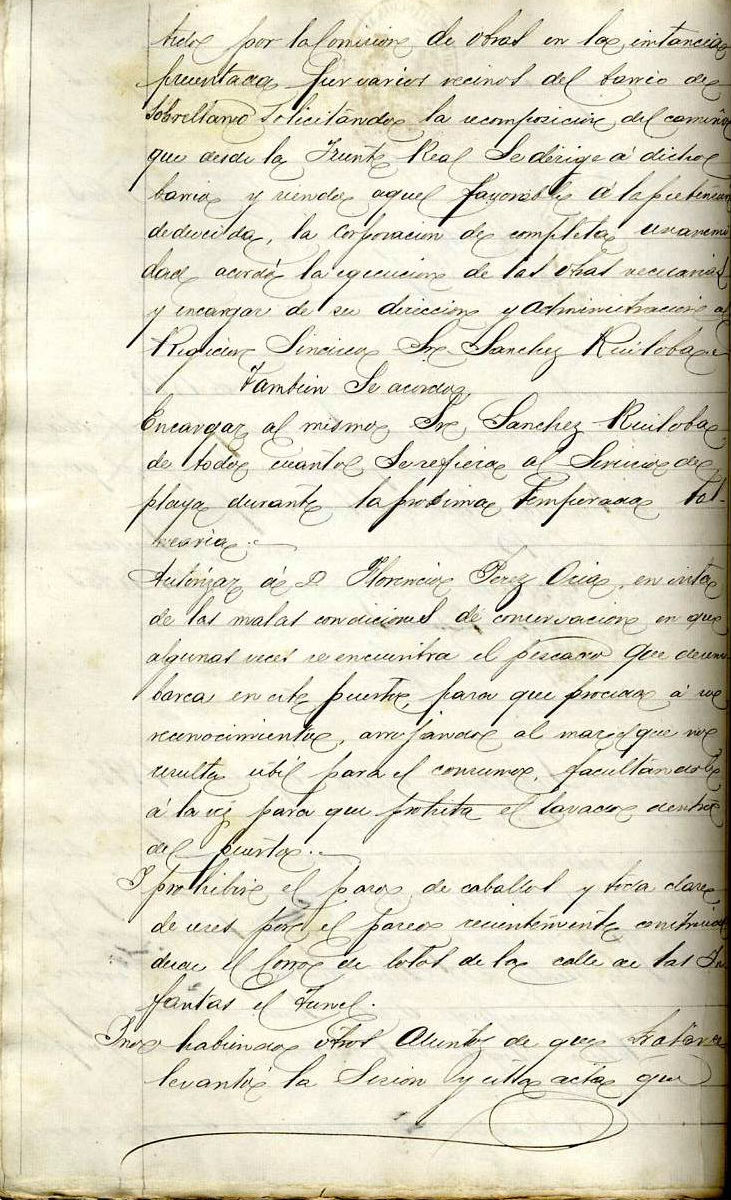 tido por la Comision de obras en la instancia
presentada por varios vecinos del barrio de
Sobrellano solicitando la recomposicion del camino
que desde la Fuente Real se dirige á dicho
barrio y siendo aquel favorable á la pretension
deducida, la Corporacion de completa unanimi
dad acordó la ejecucion de las obras necesarias
y encargar de su direccion y administracion al
Regidor Sindico Sr Sanchez Ruiloba.
Tambien se acordó
Encargar al mismo Sr Sanchez Ruiloba
de todo cuanto se refiera al servicio de
playa durante la proxima temporada bal-
nearia.
Autorizar á D Florencio Perez Oria, en vista
de las malas condiciones de conservacion en que
algunas veces se encuentra el pescado que desem
barca en este puerto, para que proceda á su
reconocimiento, arrojando al mar el que no
resulte util para el consumo, facultandole
á la vez para que prohiba el lavado dentro
del puerto.
I prohibir el paso de caballos y toda clase
de reses por el paseo recientemente construido
desde el Corro de la calle de las In
fantas el Tunel.
I no habiendo otros asuntos de que tratar se
levantó la Sesion y esta acta que